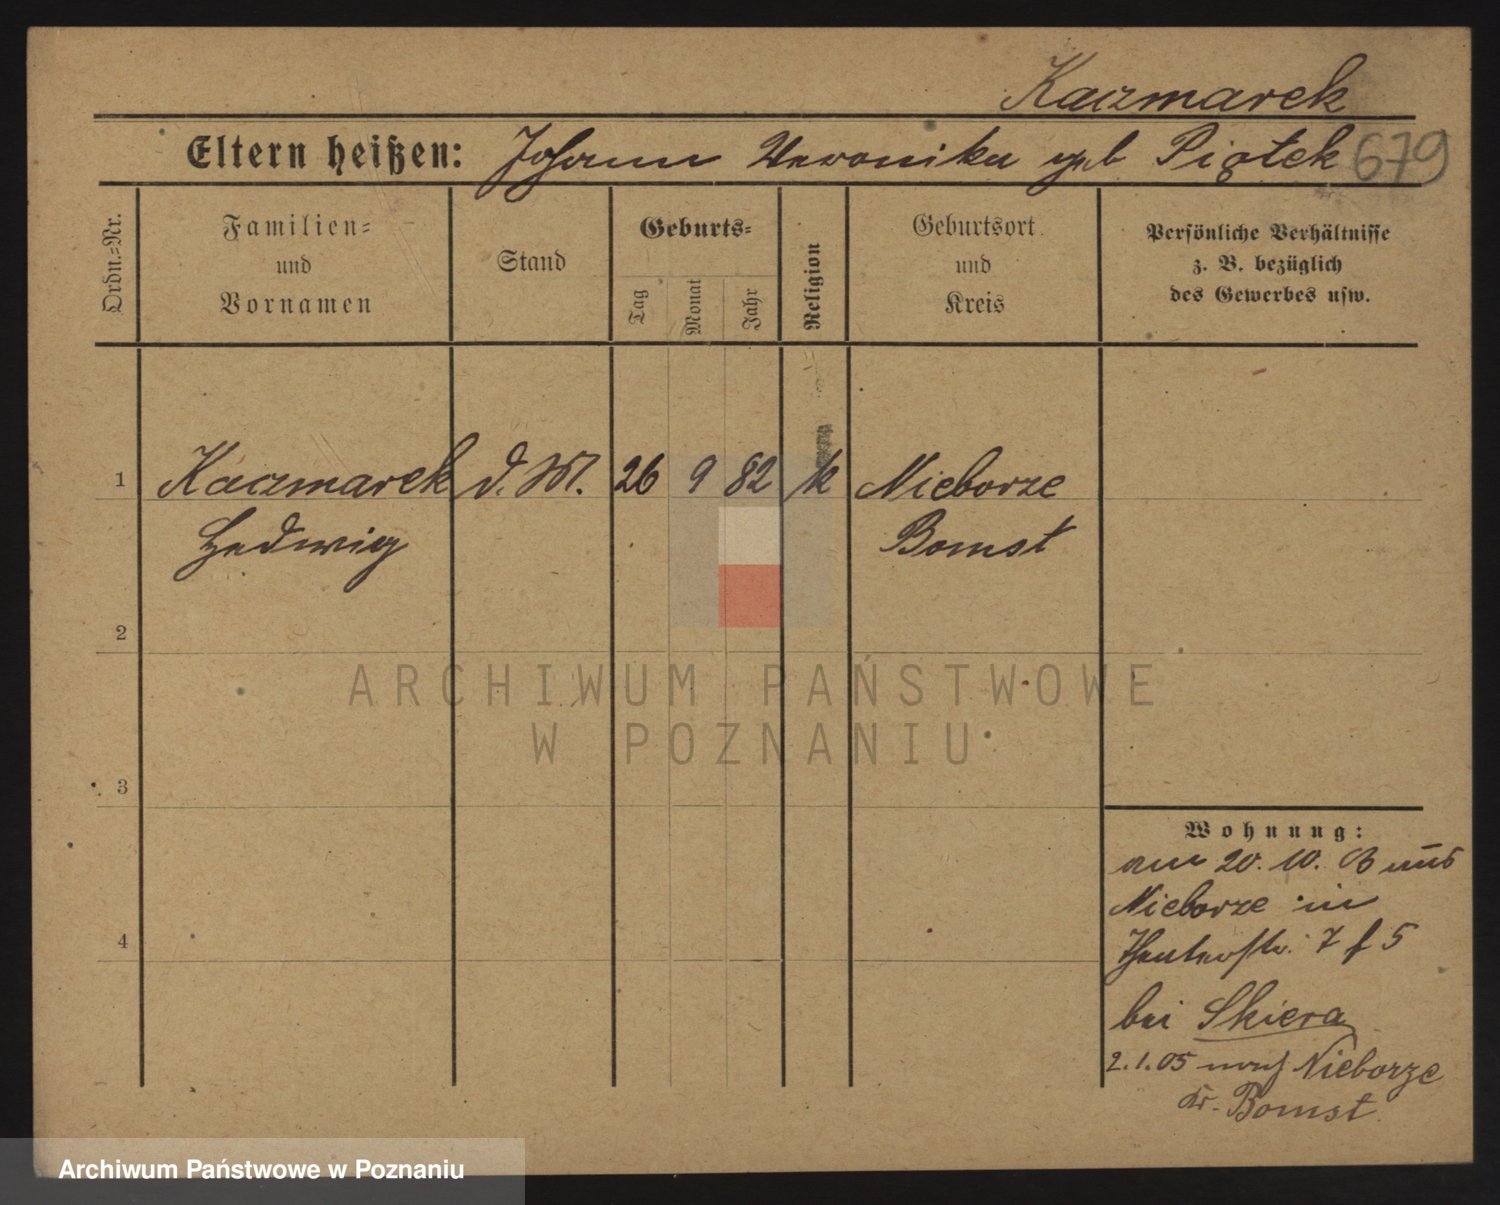 Kaczmarek
Eltern heißen: Johann Veronika geb Piątek 679
Ordn.-Nr.
Familien-
und
Vornamen
Stand
Geburts-
Tag
Monat
Jahr
Religion
Geburtsort
und
Kreis
Persönliche Verhältnisse
z. B. bezüglich
des Gewerbes usw.
1 Kaczmarek d. M. 26 9 82 k Nieborze
Hedwig Bomst
2
3
4
Wohnung:
am 20. 10. 03 aus
Nieborze in
Theaterstr. 7 f 5
bei Skiera
2. 1. 05 nach Nieborze
Kr. Bomst
ARCHIWUM PAŃSTWOWE
W POZNANIU
Archiwum Państwowe w Poznaniu